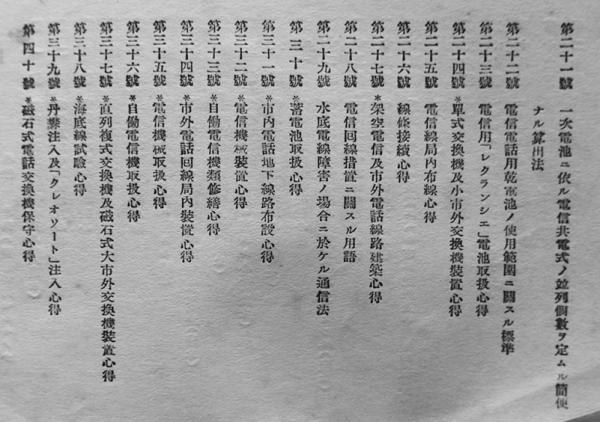 第二十一號　一次電池ニ依ル電信共電式ノ並列個數ヲ定ムル簡便
ナル算出法
第二十二號　電信電話用乾電池ノ使用範圍ニ關スル標準
第二十三號　電信用「レクランシエ」電池取扱心得
第二十四號　※單式交換機及小市外交換機裝置心得
第二十五號　電信線局內布線心得
第二十六號　線條接續心得
第二十七號　※架空電信及市外電話線路建築心得
第二十八號　電信回線措置ニ關スル用語
第二十九號　水底電線障害ノ場合ニ於ケル通信法
第三十號　※蓄電池取扱心得
第三十一號　※市內電話地下線路布設心得
第三十二號　※電信機械裝置心得
第三十三號　※自働電信機類修繕心得
第三十四號　※市外電話回線局內裝置心得
第三十五號　※電信機械取扱心得
第三十六號　※自働電信機取扱心得
第三十七號　※直列複式交換機及磁石式大市外交換機裝置心得
第三十八號　※海底線試驗心得
第三十九號　※丹礬注入及「クレオソート」注入心得
第四十號　※磁石式電話交換機保守心得